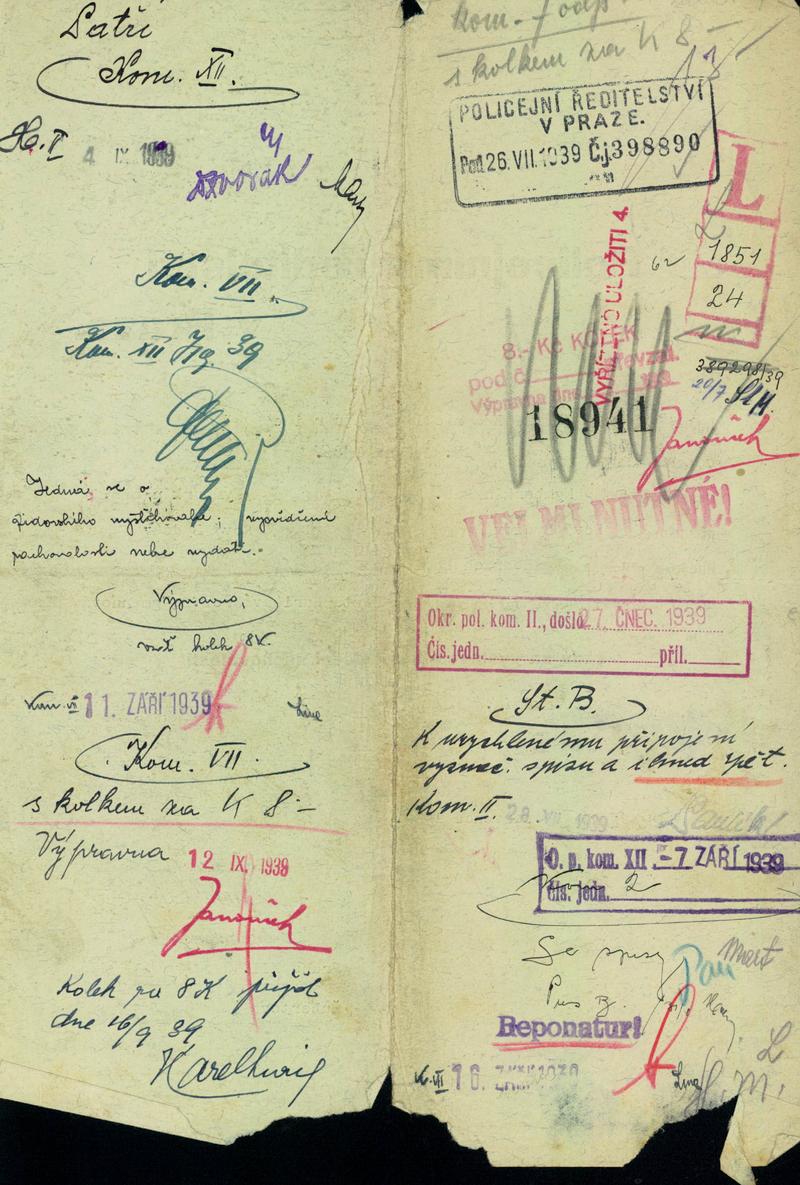 Patří
Kom. XII.
4 IX 1939
Dvořák
Kom. VII.
Kom. XII 7/9. 39
Jedná se o
židovského vystěhovalce;
nebo vydati.
Výpravno,
kolek 8K.
Kom. VII 11. ZÁŘÍ 1939
Kom. VII.
s kolkem za K 8.-
Výpravna 12 IX. 1939
Janovích
Kolek za 8K přijal
dne 16/9 39
kom.
s kolkem za K 8 -
13
POLICEJNÍ ŘEDITELSTVÍ
V PRAZE.
Pod. 26. VII. 1939 Čj 398890
L
1851
24
62
VYŘÍZENO ULOŽITI 4.
8.- Kč KOLEK
pod č. převzal.
Výpravna dne
389298/39
20/7
18941
Janovích
VELMI NUTNÉ!
Okr. pol. kom. II., došlo 27. ČNEC. 1939
Čís. jedn. příl.
St. B.
K urychlenému připojení
spisu a ihned zpět.
Kom. II. 28. VII. 1939
O. p. kom. XII -7 ZÁŘÍ 1939
Čís. jedn. 2
Se spisy
Reponatur!
K. VII 16. ZÁŘÍ 1939
L